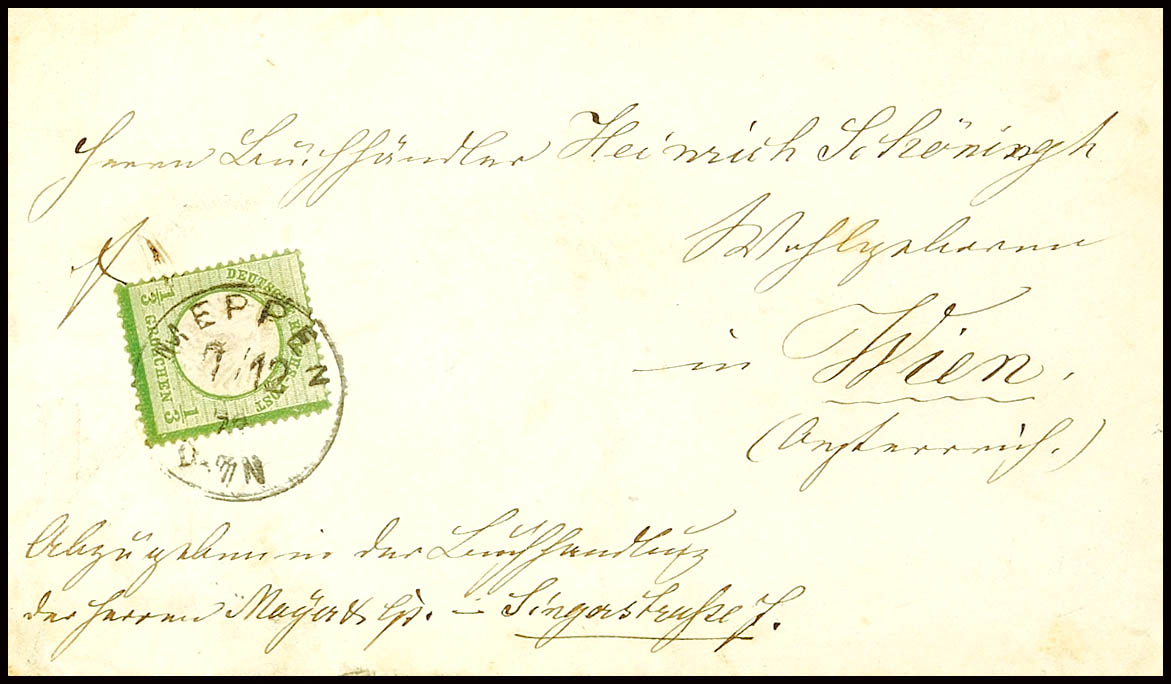 Herrn Buchhändler Heinrich Schöningh
Wohlgeboren
in Wien.
(Oesterreich.)
DEUTSCHE REICHS POST
1/3 GROSCHEN 1/3
MEPPEN
7/12
Abzugeben in der Buchhandlung
der Herren Mayer & Cp. – Singerstraße 7.